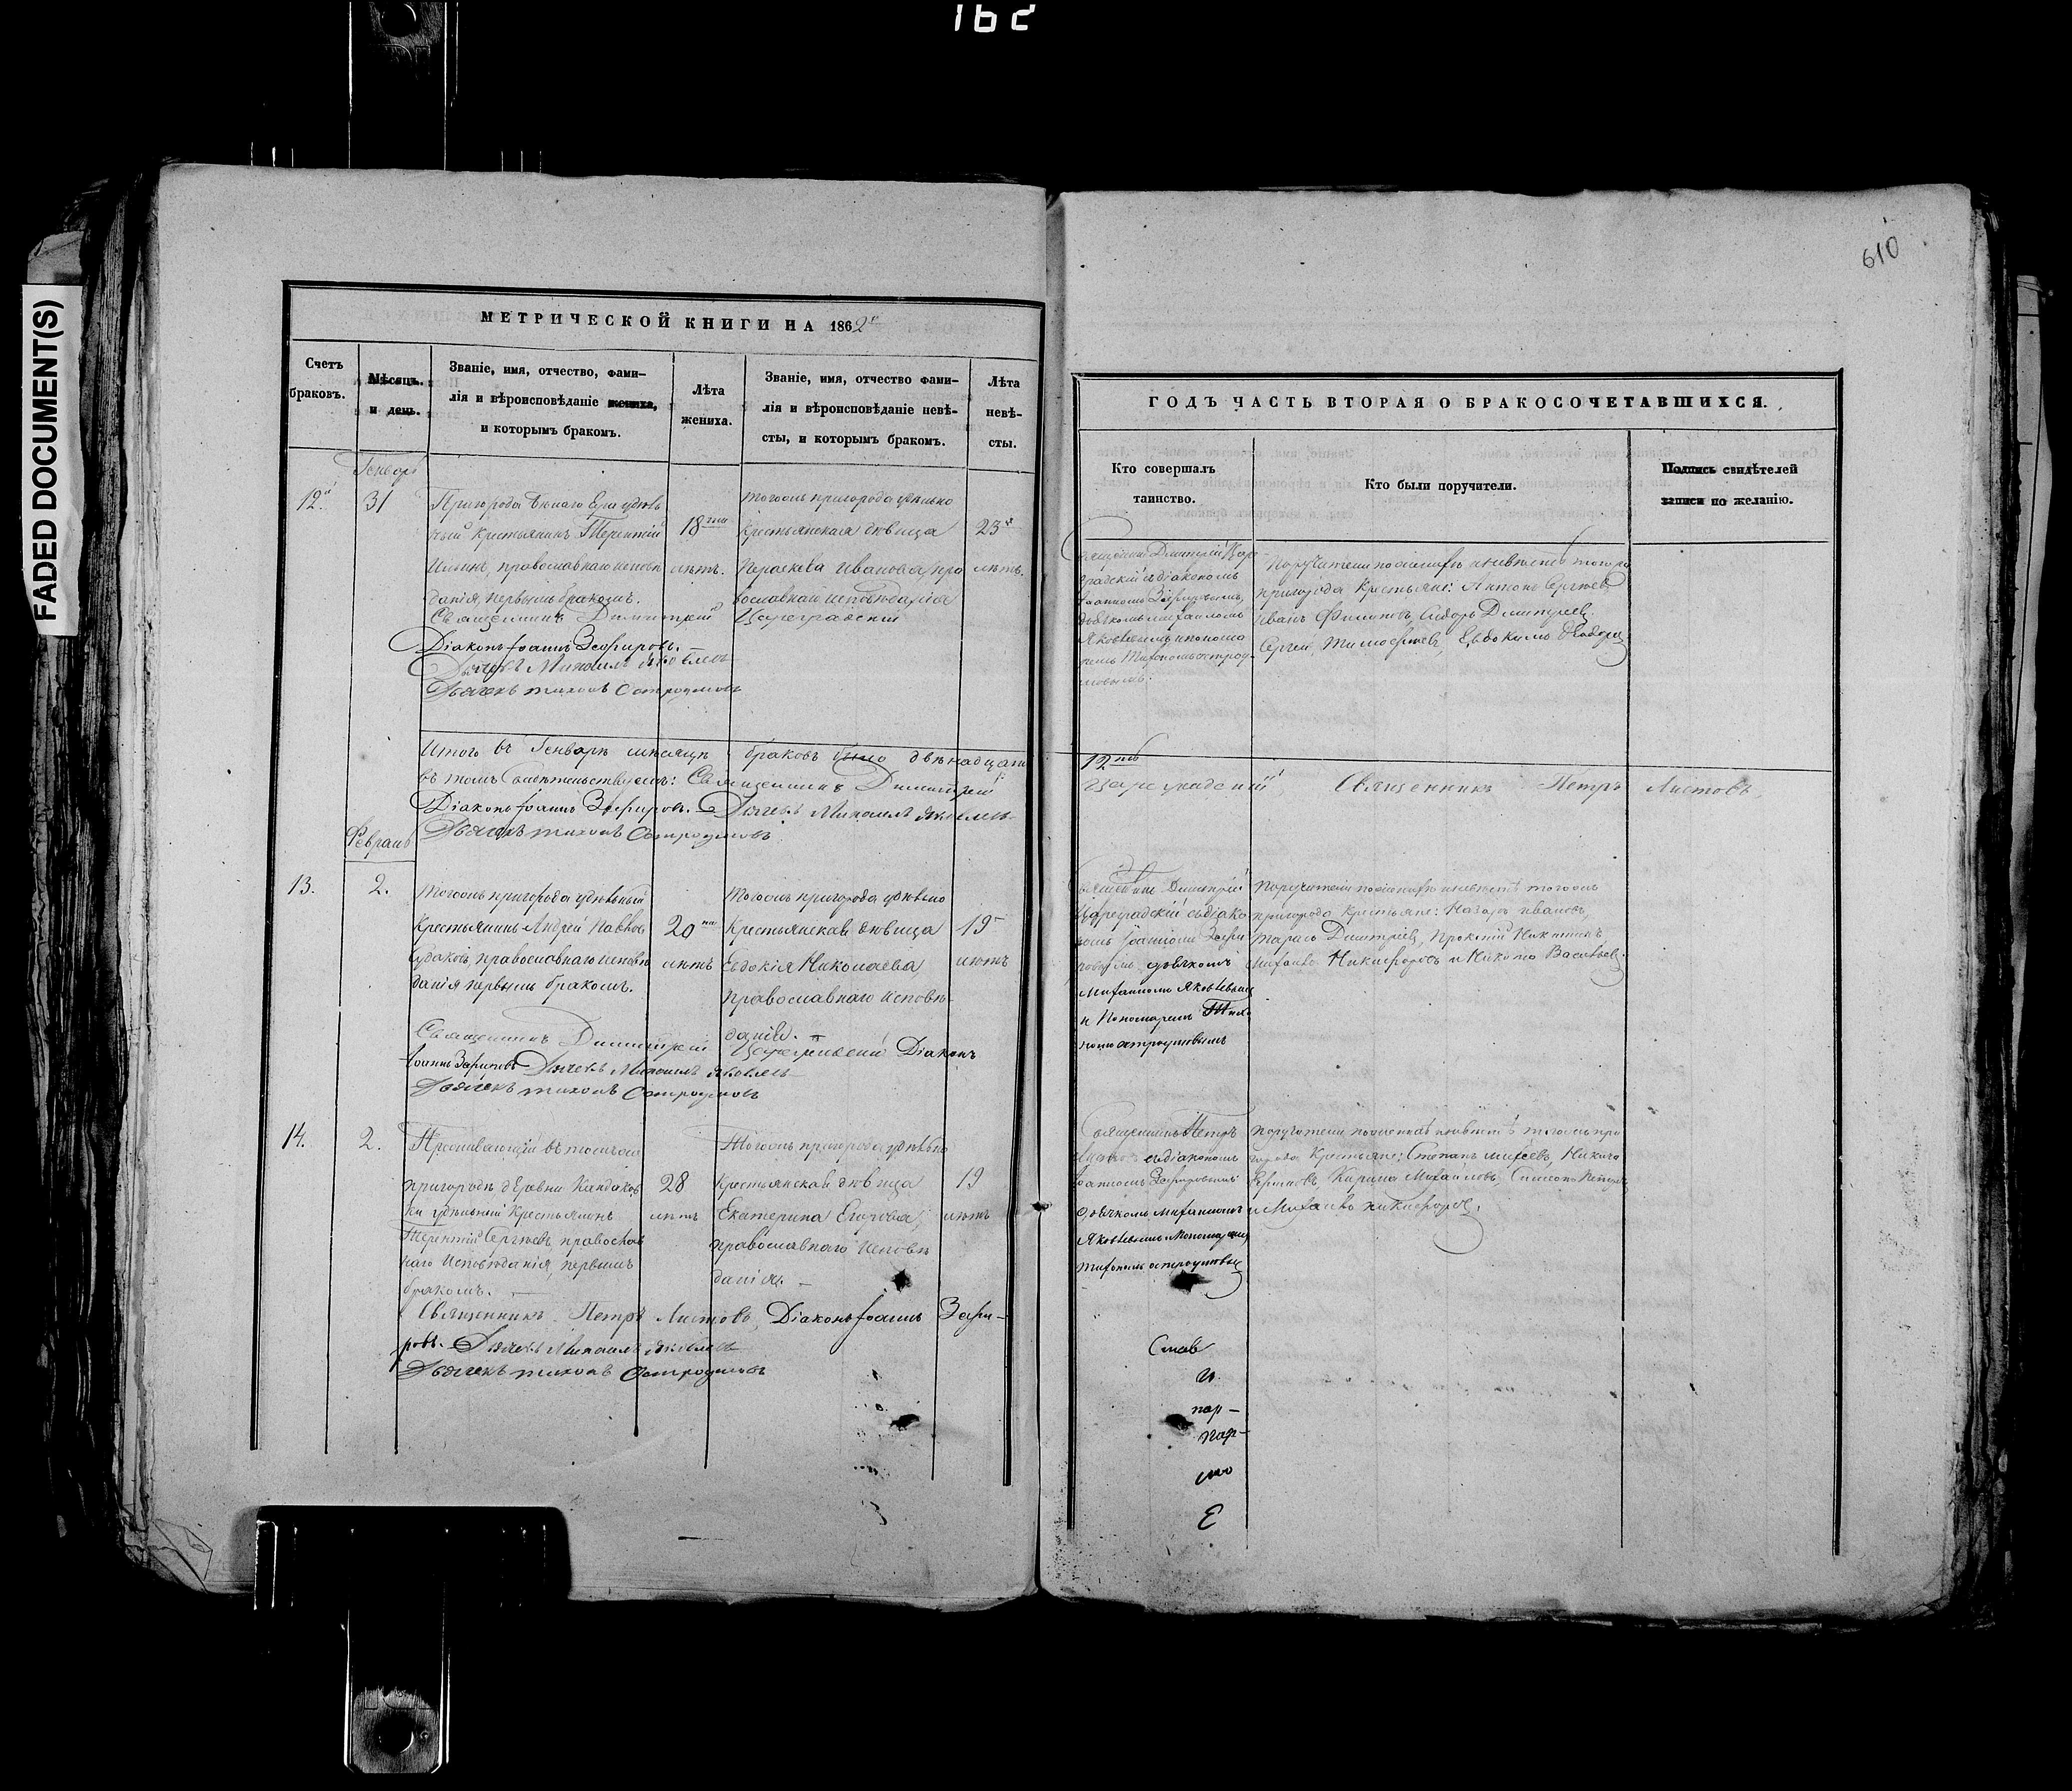 162
FADED DOCUMENT(S)
610
МЕТРИЧЕСКОЙ КНИГИ НА 1862
Счетъ браковъ.
Мѣсяцъ и день.
Званіе, имя, отчество, фами-
лія и вѣроисповѣданіе жениха,
и которымъ бракомъ.
Лѣта
жениха.
Званіе, имя, отчество фами-
лія и вѣроисповѣданіе невѣ-
сты, и которымъ бракомъ.
Лѣта
невѣ-
сты.
Генварь
12.
31
Пригорода
крестьянинъ Терентій
Ильинъ, православнаго исповѣ
данія, первымъ бракомъ.
18
лѣтъ.
тогожъ пригорода удѣльно
крестьянская дѣвица
Параскева Иванова, пра
вославнаго исповѣданія
23
лѣтъ.
Священникъ Димитрій Цареградскій
Діаконъ Іоаннъ Зефировъ.
Дьячекъ Михаилъ Яковлевъ
Дьячекъ Тихонъ Остроумовъ
Итого въ Генварѣ мѣсяцѣ браковъ было двѣнадцать
въ томъ свидѣтельствуемъ: Священникъ Димитрій
Діаконъ Іоаннъ Зефировъ. Дьячекъ Михаилъ Яковлевъ
Дьячекъ Тихонъ Остроумовъ
Февраль
13.
2.
Тогожъ пригорода удѣльный
Крестьянинъ Андрей Павловъ
православнаго исповѣ
данія первымъ бракомъ.
20
лѣтъ
Тогожъ пригорода удѣльно
Крестьянская дѣвица
Евдокія Николаева
православнаго исповѣ-
данія.
19
лѣтъ
Священникъ Димитрій Цареградскій Діаконъ
Іоаннъ Зефировъ Дьячекъ Михаилъ Яковлевъ
Дьячекъ Тихонъ Остроумовъ
14.
2.
Проживающій въ
пригородѣ деревни
удѣльный Крестьянинъ
Терентій Сергѣевъ, православ
наго Исповѣданія, первымъ
бракомъ.
28
лѣтъ
Тогожъ пригорода удѣльно
Крестьянская дѣвица
Екатерина Егорова,
православнаго исповѣ
данія.
19
лѣтъ
Священникъ Петръ Листовъ, Діаконъ Іоаннъ Зефи-
ровъ. Дьячекъ Михаилъ Яковлевъ
Дьячекъ Тихонъ Остроумовъ
ГОДЪ ЧАСТЬ ВТОРАЯ О БРАКОСОЧЕТАВШИХСЯ.
Кто совершалъ
таинство.
Кто были поручители.
Подпись свидѣтелей
записи по желанію.
Священникъ Димитрій Царе-
градскій съ діакономъ
Іоанномъ Зефировымъ,
дьячкомъ Михаиломъ
Яковлевымъ и понома
ремъ Тихономъ Остроу-
мовымъ.
Поручители по женихѣ и невѣстѣ того
пригорода Крестьяне: Антонъ Сергѣевъ
Иванъ Филиповъ, Сидоръ Димитріевъ
Сергѣй Тимофеевъ, Евдокимъ
12
Цареградскій Священникъ Петръ Листовъ,
Священникъ Димитрій
Цареградскій съ діако
номъ Іоанномъ Зефи
ровымъ дьячкомъ
Михаиломъ Яковлевымъ
и Пономаремъ Тихо
номъ Остроумовымъ
Поручители по женихѣ и невѣстѣ тогожъ
пригорода Крестьяне: Назаръ Ивановъ,
Тарасъ Димитріевъ, Никитинъ
Михаилъ Никифоровъ и Никита Васильевъ.
Священникъ Петръ
Листовъ съ діакономъ
Іоанномъ Зефировымъ
дьячкомъ Михаиломъ
Яковлевымъ Пономаремъ
Тихономъ Остроумовымъ
Поручители по женихѣ и невѣстѣ тогожъ при
города Крестьяне: Степанъ Никита
Михаиловъ, Петровъ
и Михаилъ Никифоровъ.
Слав
и
пар-
пар-
Е